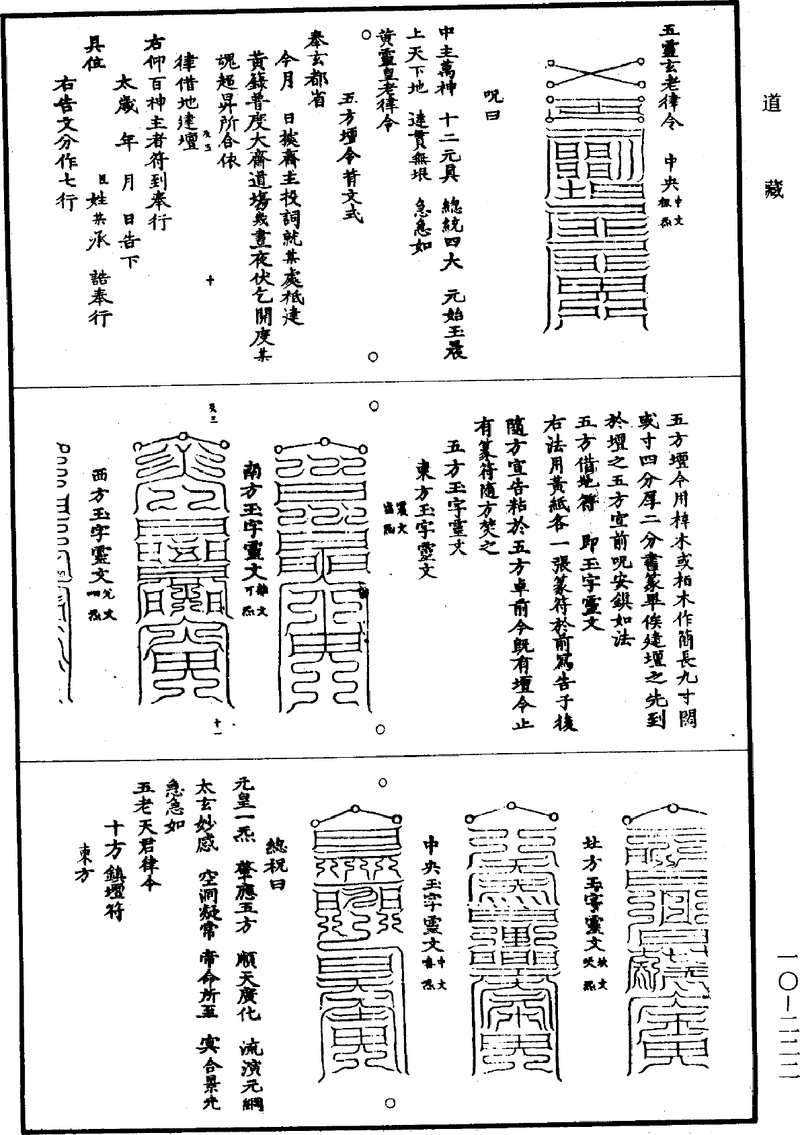 道藏
五靈玄老律令　中央
呪曰
中主萬神　十二元具　總統四大　元始玉晨
上天下地　達貫無垠　急急如
黃靈皇老律令
五方壇令背文式
奉玄都省
今月　日據齋主投詞就某處袛建
黃籙普度大齋道場幾晝夜伏乞開度某
魂超昇所合依
律借地建壇
右仰百神主者符到奉行
太歲　年　月　日告下
具位　臣姓某承　誥奉行
右告文分作七行
五方壇令用梓木或栢木作簡長九寸闊
或寸四分厚二分書篆畢俟建壇之先到
於壇之五方宣前呪安鎮如法
五方借地符　即玉字靈文
右法用黃紙各一張篆符於前寫告于後
隨方宣告粘於五方卓前今既有壇令止
有篆符隨方焚之
五方玉字靈文
東方玉字靈文
南方玉字靈文
西方玉字靈文
北方玉字靈文
中央玉字靈文
總祝曰
元皇一炁　肇應五方　順天廣化　流演元綱
太玄妙感　空洞凝常　帝命所至　冥合景光
急急如
五老天君律令
十方鎮壇符
東方
一〇—二二二